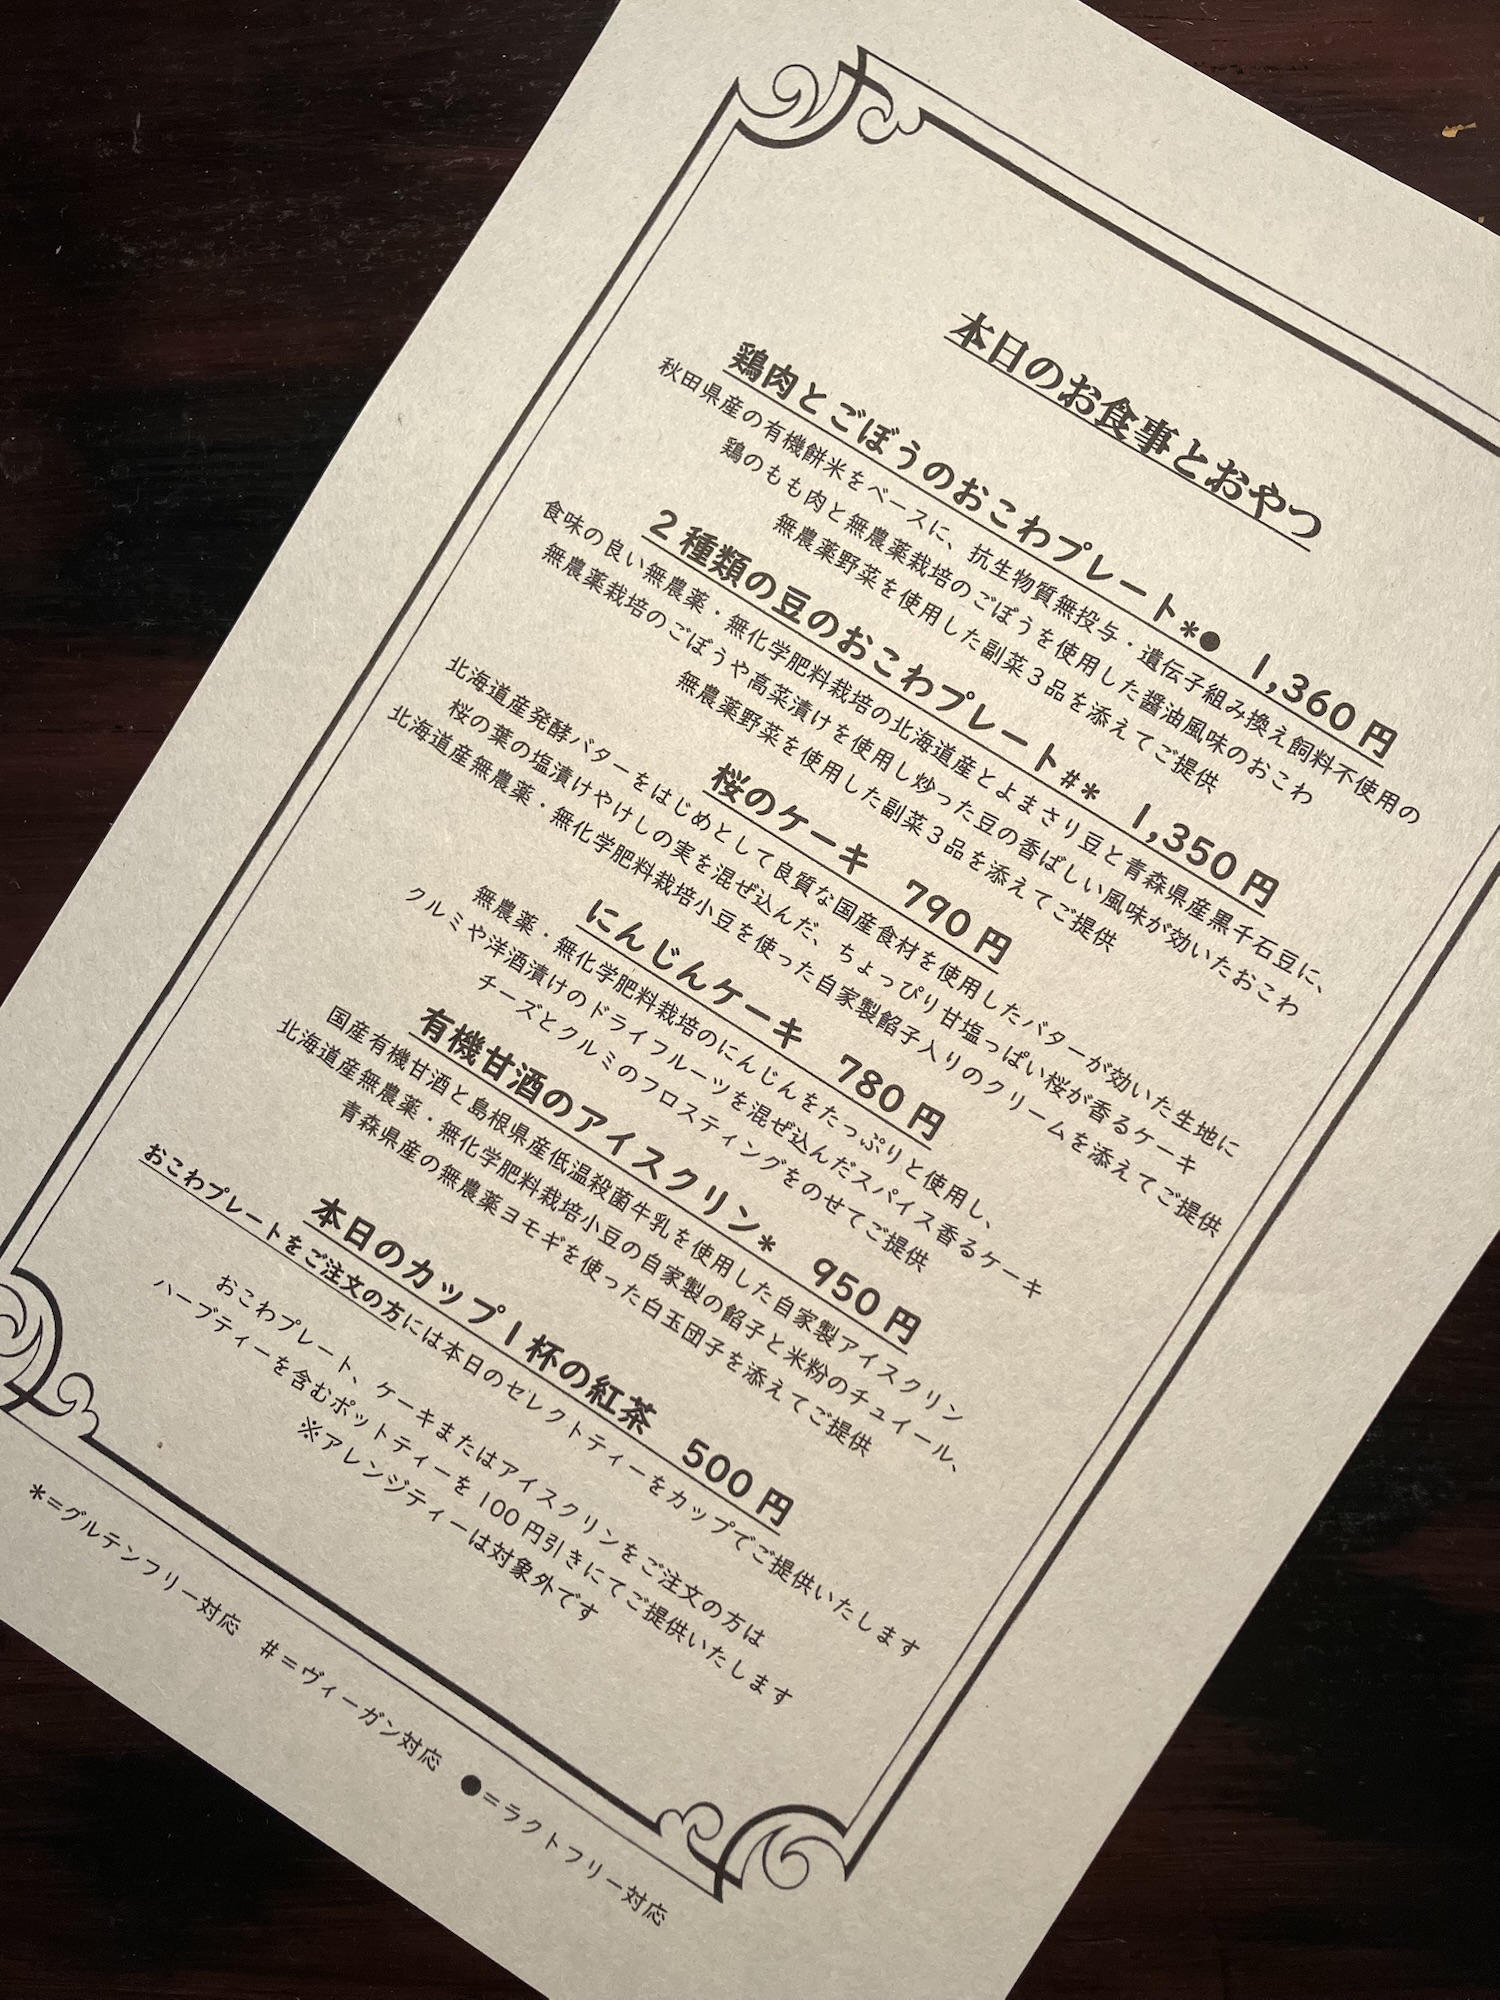 本日のお食事とおやつ
鶏肉とごぼうのおこわプレート*● 1,360円
秋田県産の有機餅米をベースに、抗生物質無投与・遺伝子組み換え飼料不使用の
鶏のもも肉と無農薬栽培のごぼうを使用した醤油風味のおこわ
無農薬野菜を使用した副菜3品を添えてご提供
2種類の豆のおこわプレート#* 1,350円
食味の良い無農薬・無化学肥料栽培の北海道産とよまさり豆と青森県産黒千石豆に、
無農薬栽培のごぼうや高菜漬けを使用し炒った豆の香ばしい風味が効いたおこわ
無農薬野菜を使用した副菜3品を添えてご提供
桜のケーキ 790円
北海道産発酵バターをはじめとして良質な国産食材を使用したバターが効いた生地に
桜の葉の塩漬けやけしの実を混ぜ込んだ、ちょっぴり甘塩っぱい桜が香るケーキ
北海道産無農薬・無化学肥料栽培小豆を使った自家製餡子入りのクリームを添えてご提供
にんじんケーキ 780円
無農薬・無化学肥料栽培のにんじんをたっぷりと使用し、
クルミや洋酒漬けのドライフルーツを混ぜ込んだスパイス香るケーキ
チーズとクルミのフロスティングをのせてご提供
有機甘酒のアイスクリン* 950円
国産有機甘酒と島根県産低温殺菌牛乳を使用した自家製アイスクリン
北海道産無農薬・無化学肥料栽培小豆の自家製の餡子と米粉のチュイール、
青森県産の無農薬ヨモギを使った白玉団子を添えてご提供
本日のカップ1杯の紅茶 500円
おこわプレートをご注文の方には本日のセレクトティーをカップでご提供いたします
おこわプレート、ケーキまたはアイスクリンをご注文の方は
ハーブティーを含むポットティーを100円引きにてご提供いたします
※アレンジティーは対象外です
*=グルテンフリー対応 #=ヴィーガン対応 ●=ラクトフリー対応